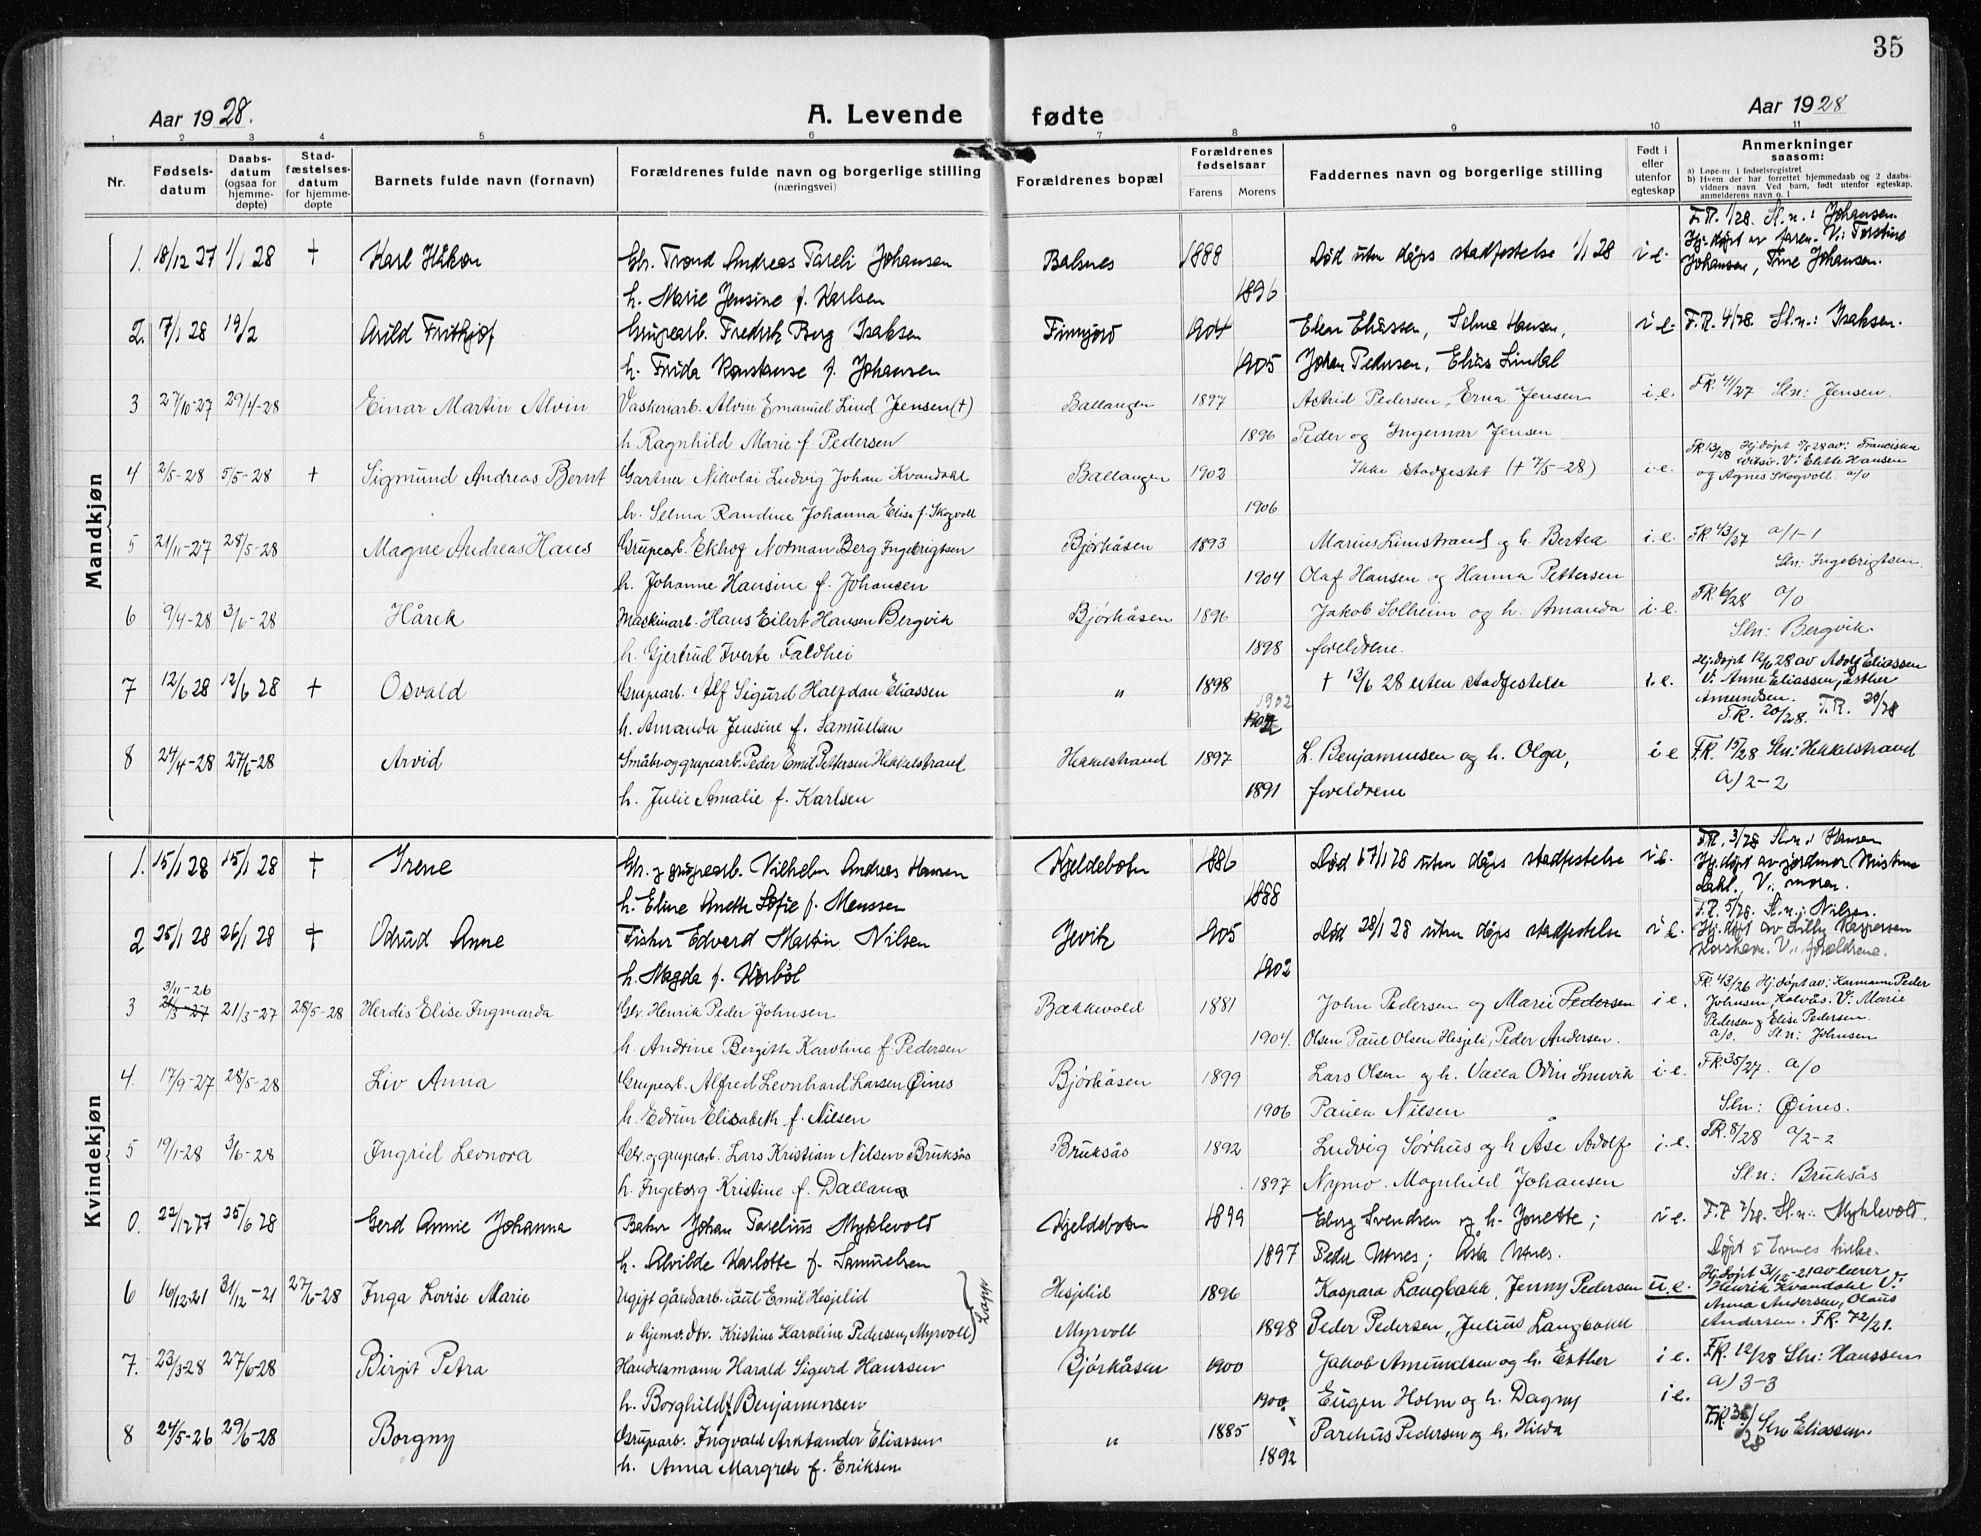 35
Aar 1928.
A. Levende fødte
Aar 1928
1 2 3 4 5 6 7 8 9 10 11
Nr.
Fødsels-datum
Daabs-datum (ogsaa for hjemme-døpte)
Stad-fæstelses-datum for hjemme-døpte
Barnets fulde navn (fornavn)
Forældrenes fulde navn og borgerlige stilling (næringsvei)
Forældrenes bopæl
Forældrenes fødselsaar
Farens Morens
Faddernes navn og borgerlige stilling
Født i eller utenfor egteskap
Anmerkninger saasom:
a) Løpe-nr. i fødselsregistret
b) Hvem der har forrettet hjemmedaab og 2 daabs-
vidners navn Ved barn, født utenfor egteskap,
anmelderens navn o. l
Mandkjøn
F.R. 1/28. Sl.n.: Johansen.
1. 18/12 27 1/1 28 + Karl Håkon Gbr. Trond Andreas Pareli Johansen Balsnes 1888 Død uten dåps stadfestelse 1/1 28 i e. Hj.døpt av faren. V.: Torstine
h. Marie Jensine f. Karlsen 1896 Johansen, Tine Johansen.
2. 17/1 28 19/2 Arild Frithjof Grupearb. Fredrik Berg Isaksen Finnjord 1904 Elen Eliassen, Selma Hansen, i e. F.R. 4/28. Sl.n.: Isaksen.
h. Frida Konstanse f. Johansen 1905 Johan Pedersen, Elias Lindal
3 27/10-27 29/4-28 Einar Martin Alvin Vaskeriarb. Alvin Emanuel Lind Jensen (+) Ballangen 1897 Astrid Pedersen, Erna Jensen i.e. FR. 41/27 Sln: Jensen.
h. Ragnhild Marie f. Pedersen 1896 Peder og Ingemar Jensen
4 2/5-28 5/5-28 + Sigmund Andreas Bernt Gartner Nikolai Ludvig Johan Kvandahl Ballangen 1902 Ikke stadfestet (+ 7/5-28) i.e. FR 13/28 Hj.døpt 5/5 28 av: Franciska
V: Elitte Hansen
og Agnes Skogvoll. a/0
h. Selma Randine Johanna Elise f. Skogvoll 1906
5 21/11-27 28/5-28 Magne Andreas Hans Grupearb. Ekhof Norman Berg Ingebrigtsen Bjørkåsen 1893 Marius Limstrand og h. Bertea i.e. FR 43/27 a/1-1
h. Johanne Hansine f. Johansen 1904 Olaf Hansen og Hanna Pettersen Sln: Ingebrigtsen.
6 9/4-28 3/6-28 Hårek Maskinarb. Hans Eilert Hansen Bergvik Bjørkåsen 1896 Jakob Solheim og h. Amanda i.e. FR. 6/28 a/0
h. Gjertrud Iverta Faldhei 1898 foreldrene. Sln: Bergvik.
7 12/6 28 12/6 28 + Osvald Grupearb. Alf Sigurd Halfdan Eliassen " 1898 + 13/6 28 uten stadfestelse i.e. Hj.døpt 12/6 28 av Adolf Eliassen
V: Anne Eliassen, Esther
Amundsen.
h. Amanda Jensine f. Samuelsen 1902 FR. 20/28. F.R. 20/28
8 24/4-28 27/6-28 Arvid Småbr. og grupearb. Peder Emil Pettersen Hekkelstrand Hekkelstrand 1897 L. Benjaminsen og h. Olga, i e F.R. 15/28 Sln: Hekkelstrand
h. Julie Amalie f. Karlsen 1891 foreldrene a) 2-2
Kvindekjøn
F.R. 3/28 Sl.n.: Hansen
1. 15/1 28 15/1 28 + Irene Gbr. og grupearb. Vilhelm Andreas Hansen Kjeldebotn 1886 Død 17/1 28 uten dåps stadfestelse i e. Hj.døpt av jordmor Kristine
Dahl. V.: moren.
h. Eline Anette Sofie f. Monssen 1888
F.R. 5/28. Sl.n.: Nilsen.
2 25/1 28 26/1 28 + Odrud Anne Fisker Edvard Martin Nilsen Jevik 1905 Død 28/1 28 uten dåps stadfestelse i e. Hj.døpt av Lilly Kaspersen
V.: foreldrene.
h. Magda f. Korbøl 1902
3 3/11-26 21/3-27 21/3-27 28/5-28 Herdis Elise Ingmarda Gbr. Henrik Peder Johnsen Bakkevold 1881 John Pedersen og Marie Pedersen i e. FR. 43/26 Hj.døpt av: Karmann Peder
Johnsen Kalvås. V: Marie
Pedersen og Elise Pedersen.
h. Andrine Bergitte Karoline f. Pedersen 1904. Olsen Paul Olsen Hesjeli, Peder Andersen. a/0. Sln: Johnsen
4. 17/9-27 28/5-28 Liv Anna Grupearb. Alfred Leonhard Larsen Øines Bjørkåsen 1899 Lars Olsen og h. Valla Odin Snuvik i.e. FR. 35/27. a/0
h. Edrun Elisabeth f. Nilsen 1906 Paula Nilsen Sln: Øines.
5 19/1-28 3/6-28 Ingrid Leonora Gbr. og grupearb. Lars Kristian Nilsen Bruksås Bruksås 1892 Ludvig Sørhus og h Åse Adolf i.e. FR. 8/28 a/2-2
h. Ingeborg Kristine f. Dallans 1897 Nymo. Magnhild Johansen Sln: Bruksås
0. 22/12 27 25/6 28 Gerd Annie Johanna Baker Johan Parelius Myklevold Kjeldebotn 1899 Eberg Svendsen og h. Jonette; i e. F.R 2/28. Sl.n.: Myklevold.
h. Alvilde Karlotte f. Samuelsen 1897 Peder Utnes; Åsta Utnes. Døpt i Evnes kirke.
6 16/12-21 31/12-21 27/6-28 Inga Lovise Marie Ugift gårdarb. Paul Emil Hesjelid Hesjelid 1896 Kaspara Langbakk, Jenny Pedersen u.e. Hj.døpt 31/12-21 av lærer
Henrik Kvandahl V:
Anna Andersen, Olaus
" hjemv. dtr. Kristine Karoline Pedersen, Myrvoll) Lapp Myrvoll 1898 Peder Pedersen, Julius Langbakk Andersen. FR. 72/21.
7. 23/3-28 27/6-28 Birgit Petra Handelsmann Harald Sigurd Hanssen Bjørkåsen 1900 Jakob Amundsen og h. Esther i e. F.R. 12/28 Sln: Hanssen
h. Borghild f. Benjaminsen 1900. Eugen Holm og h. Dagny i e. a) 3-3
8 24/5-26 29/6-28 Borgny Grupearb. Ingvald Arktander Eliassen " 1885 Parelius Pedersen og h. Hilda F.R. 36/28 Sln Eliassen.
h. Anna Margrete f. Eriksen 1892